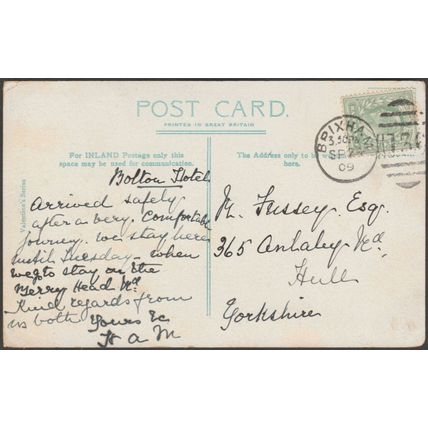 POST CARD.
PRINTED IN GREAT BRITAIN
For INLAND Postage only this
space may be used for communication.
The Address only to be
here.
Valentine's Series
BRIXHAM
SP
09
Bolton Hotel
Arrived safely
after a very. Comfortable
Journey. We stay here
until Tuesday - when
we go to stay on the
Berry Head Rd
Kind regards from
us both Yours &c
H A M
M. Fussey. Esq.
365 Anlaby Rd
Hull
Yorkshire